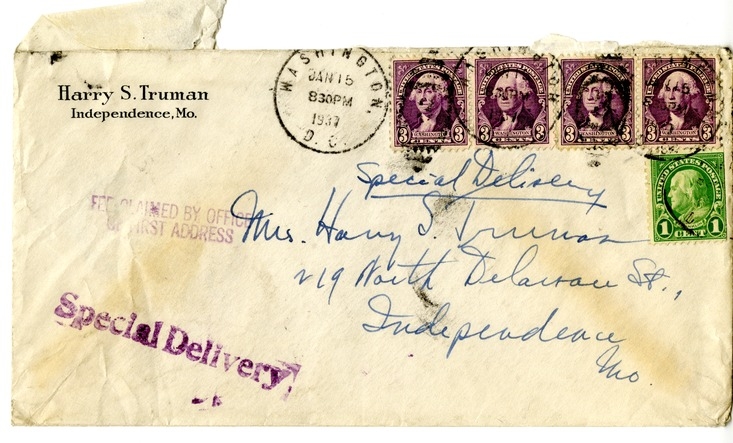 Harry S. Truman
Independence, Mo.
WASHINGTON,
JAN 15
8 30 PM
1937
D. C.
UNITED STATES POSTAGE
3 WASHINGTON 3
CENTS
UNITED STATES POSTAGE
3 WASHINGTON 3
CENTS
UNITED STATES POSTAGE
3 WASHINGTON 3
CENTS
UNITED STATES POSTAGE
3 WASHINGTON 3
CENTS
UNITED STATES POSTAGE
1 CENT 1
Special Delivery
FEE CLAIMED BY OFFICE
OF FIRST ADDRESS
Mrs. Harry S. Truman
219 North Delaware St.,
Independence
Mo.
Special Delivery